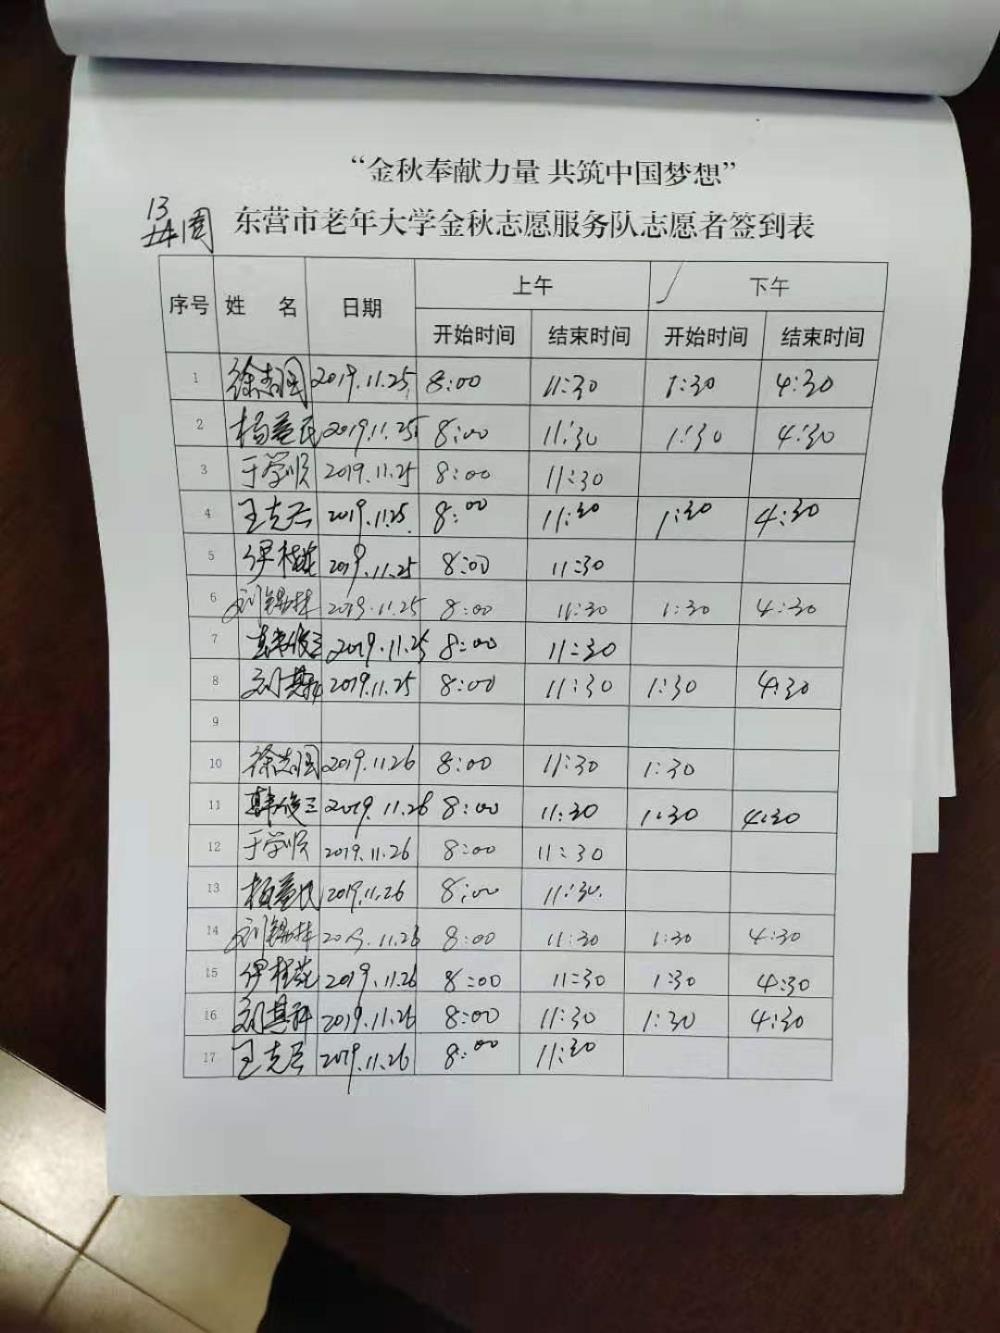 “金秋奉献力量 共筑中国梦想”
13
周 东营市老年大学金秋志愿服务队志愿者签到表
序号 姓 名 日期 上午 下午
开始时间 结束时间 开始时间 结束时间
1 徐志国 2019.11.25 8:00 11:30 1:30 4:30
2 杨益民 2019.11.25 8:00 11:30 1:30 4:30
3 于学顺 2019.11.25 8:00 11:30
4 王克 2019.11.25 8:00 11:30 1:30 4:30
5 伊桂花 2019.11.25 8:00 11:30
6 刘锡林 2019.11.25 8:00 11:30 1:30 4:30
7 韩俊三 2019.11.25 8:00 11:30
8 刘其科 2019.11.25 8:00 11:30 1:30 4:30
9
10 徐志国 2019.11.26 8:00 11:30 1:30
11 韩俊三 2019.11.26 8:00 11:30 1:30 4:30
12 于学顺 2019.11.26 8:00 11:30
13 杨益民 2019.11.26 8:00 11:30
14 刘锡林 2019.11.26 8:00 11:30 1:30 4:30
15 伊桂花 2019.11.26 8:00 11:30 1:30 4:30
16 刘其科 2019.11.26 8:00 11:30 1:30 4:30
17 王克 2019.11.26 8:00 11:30